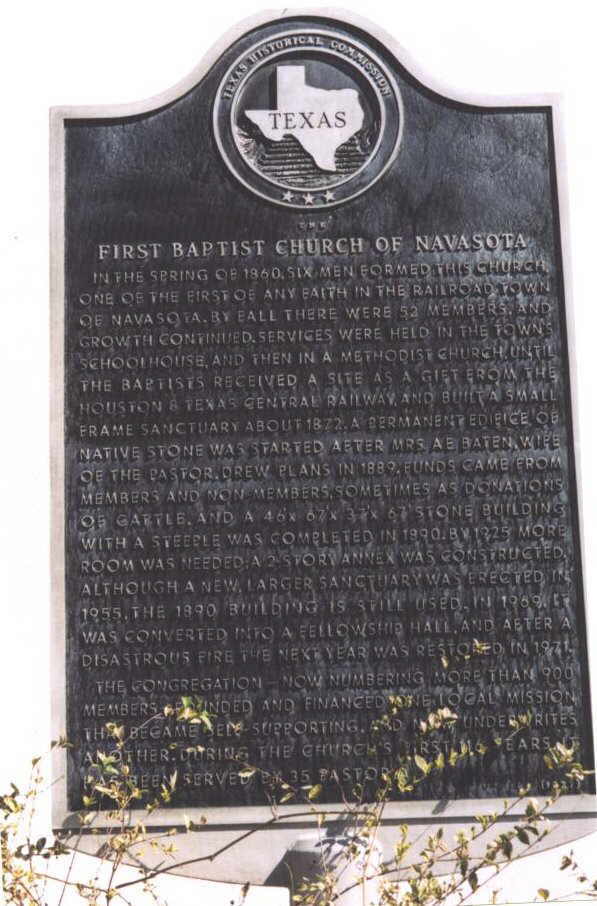 TEXAS HISTORICAL COMMISSION
TEXAS
THE
FIRST BAPTIST CHURCH OF NAVASOTA
IN THE SPRING OF 1860, SIX MEN FORMED THIS CHURCH,
ONE OF THE FIRST OF ANY FAITH IN THE RAILROAD TOWN
OF NAVASOTA. BY FALL THERE WERE 52 MEMBERS, AND
GROWTH CONTINUED. SERVICES WERE HELD IN THE TOWN'S
SCHOOLHOUSE, AND THEN IN A METHODIST CHURCH, UNTIL
THE BAPTISTS RECEIVED A SITE AS A GIFT FROM THE
HOUSTON & TEXAS CENTRAL RAILWAY, AND BUILT A SMALL
FRAME SANCTUARY ABOUT 1872. A PERMANENT EDIFICE OF
NATIVE STONE WAS STARTED AFTER MRS. A.E. BATEN, WIFE
OF THE PASTOR, DREW PLANS IN 1889. FUNDS CAME FROM
MEMBERS AND NON-MEMBERS, SOMETIMES AS DONATIONS
OF CATTLE, AND A 46' x 67' x 37' x 67' STONE BUILDING
WITH A STEEPLE WAS COMPLETED IN 1890. BY 1925 MORE
ROOM WAS NEEDED; A 2-STORY ANNEX WAS CONSTRUCTED.
ALTHOUGH A NEW, LARGER SANCTUARY WAS ERECTED IN
1955, THE 1890 BUILDING IS STILL USED. IN 1969, IT
WAS CONVERTED INTO A FELLOWSHIP HALL, AND AFTER A
DISASTROUS FIRE THE NEXT YEAR WAS RESTORED IN 1971.
THE CONGREGATION — NOW NUMBERING MORE THAN 900
MEMBERS, FOUNDED AND FINANCED ONE LOCAL MISSION
THAT BECAME SELF-SUPPORTING, AND NOW UNDERWRITES
ANOTHER. DURING THE CHURCH'S FIRST YEARS IT
HAS BEEN SERVED BY 35 PASTORS.